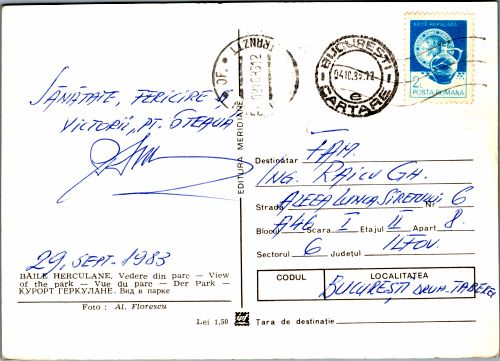 SĂNĂTATE, FERICIRE ȘI
VICTORII, PT. STEAUA
29. SEPT. 1983
BĂILE HERCULANE. Vedere din parc — View
of the park — Vue du parc — Der Park —
КУРОРТ ГЕРКУЛАНЕ. Вид в парке
Foto : Al. Florescu
Lei 1,50
EDITURA MERIDIANE
TRANZIT
OF.
BUCUREȘTI
04.10.83.12
e
CARTARE
ARTA POPULARA
2L
POSTA ROMANA
Destinatar FAM.
ING. RAICU GH.
Strada ALEEA LUNCA SIRETULUI Nr 6
Blocul A46 Scara I Etajul II Apart 8.
Sectorul 6 Județul ILFOV.
CODUL LOCALITATEA
BUCUREȘTI DRUM-TABEREI
Țara de destinație